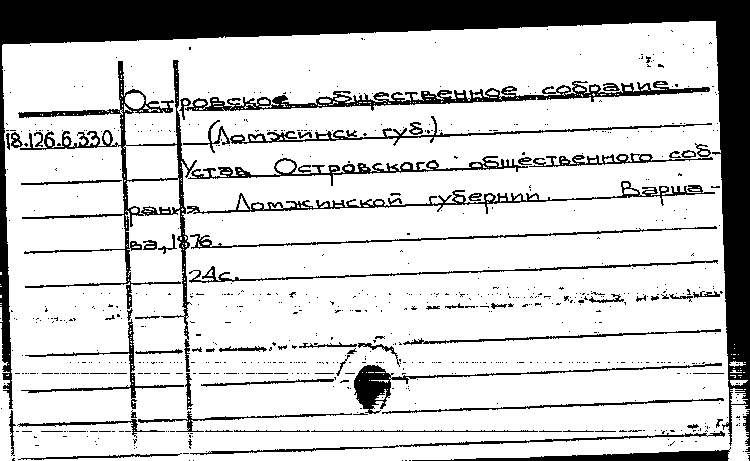 Островское общественное собрание.
18.126.6.330. (Ломжинск. губ.).
Устав Островского общественного соб-
рания Ломжинской губернии. Варша-
ва, 1876.
24с.